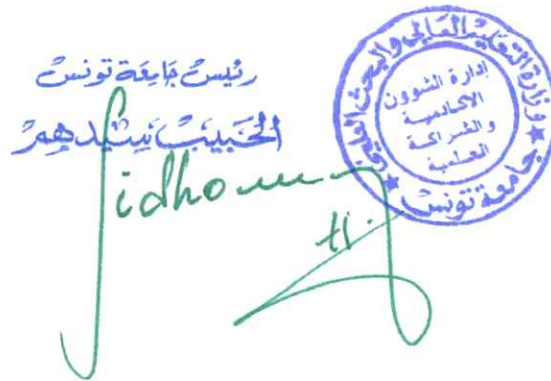 رئيس جامعة تونس
الحبيب سيدهم
Sidhom
H.
وزارة التعليم العالي والبحث العلمي
إدارة الشؤون
الأكاديمية
والشراكة
العلمية
جامعة تونس